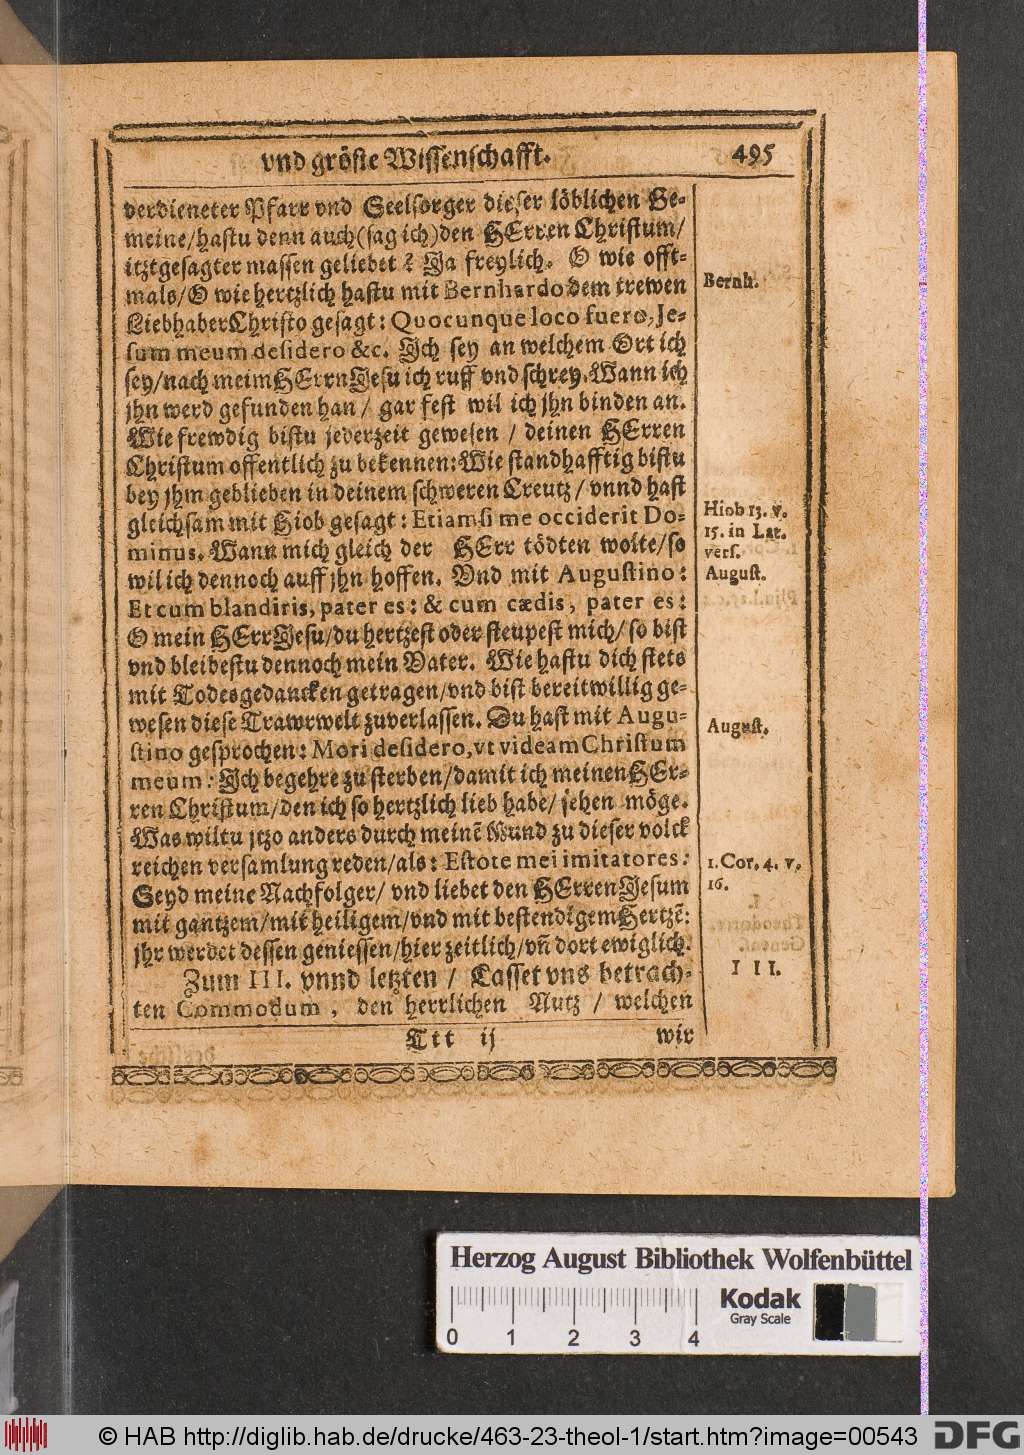 vnd gröste Wissenschafft. 495
verdieneter Pfarr vnd Seelsorger dieser löblichen Ge-
meine/hastu denn auch(sag ich)den HErren Christum/
itztgesagter massen geliebet? Ja freylich. O wie offt-
mals/O wie hertzlich hastu mit Bernhardo dem trewen
Liebhaber Christo gesagt: Quocunque loco fuero, Je-
sum meum desidero &c. Ich sey an welchem Ort ich
sey/nach meim HErrn Jesu ich ruff vnd schrey. Wann ich
jhn werd gefunden han/ gar fest wil ich jhn binden an.
Wie frewdig bistu jederzeit gewesen / deinen HErren
Christum offentlich zu bekennen: Wie standhafftig bistu
bey jhm geblieben in deinem schweren Creutz/ vnnd hast
gleichsam mit Hiob gesagt: Etiamsi me occiderit Do-
minus. Wann mich gleich der HErr tödten wolte/so
wil ich dennoch auff jhn hoffen. Vnd mit Augustino:
Et cum blandiris, pater es: & cum cædis, pater es:
O mein HErr Jesu/du hertzest oder steupest mich/ so bist
vnd bleibestu dennoch mein Vater. Wie hastu dich stets
mit Todesgedancken getragen/vnd bist bereitwillig ge-
wesen diese Trawrwelt zuverlassen. Du hast mit Augu-
stino gesprochen: Mori desidero, vt videam Christum
meum: Ich begehre zu sterben/damit ich meinen HEr-
ren Christum/den ich so hertzlich lieb habe/ sehen möge.
Was wiltu jtzo anders durch meinẽ Mund zu dieser volck
reichen versamlung reden/als: Estote mei imitatores:
Seyd meine Nachfolger/ vnd liebet den HErren Jesum
mit gantzem/mit heiligem/vnd mit bestendigem Hertzẽ:
jhr werdet dessen geniessen/hier zeitlich/vñ dort ewiglich.
Zum III. vnnd letzten / Lasset vns betrach-
ten Commodum, den herrlichen Nutz / welchen
Ttt ij wir
Bernh.
Hiob 13. v.
15. in Lat.
vers.
August.
August.
1. Cor. 4. v.
16.
III.
Herzog August Bibliothek Wolfenbüttel
0 1 2 3 4
Kodak
Gray Scale
© HAB http://diglib.hab.de/drucke/463-23-theol-1/start.htm?image=00543
DFG